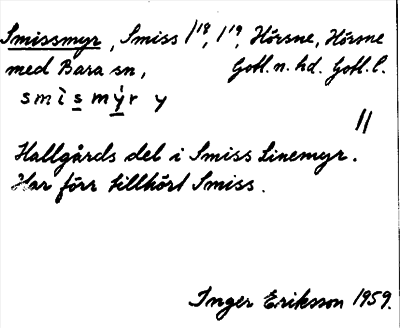 Smissmyr, Smiss 1¹⁸, 1¹⁹, Hörsne, Hörsne
med Bara sn, Gotl. n. hd. Gotl. l.
smìsmýr y
Hallgårds del i Smiss Linemyr. //
Har förr tillhört Smiss.
Inger Eriksson 1959.